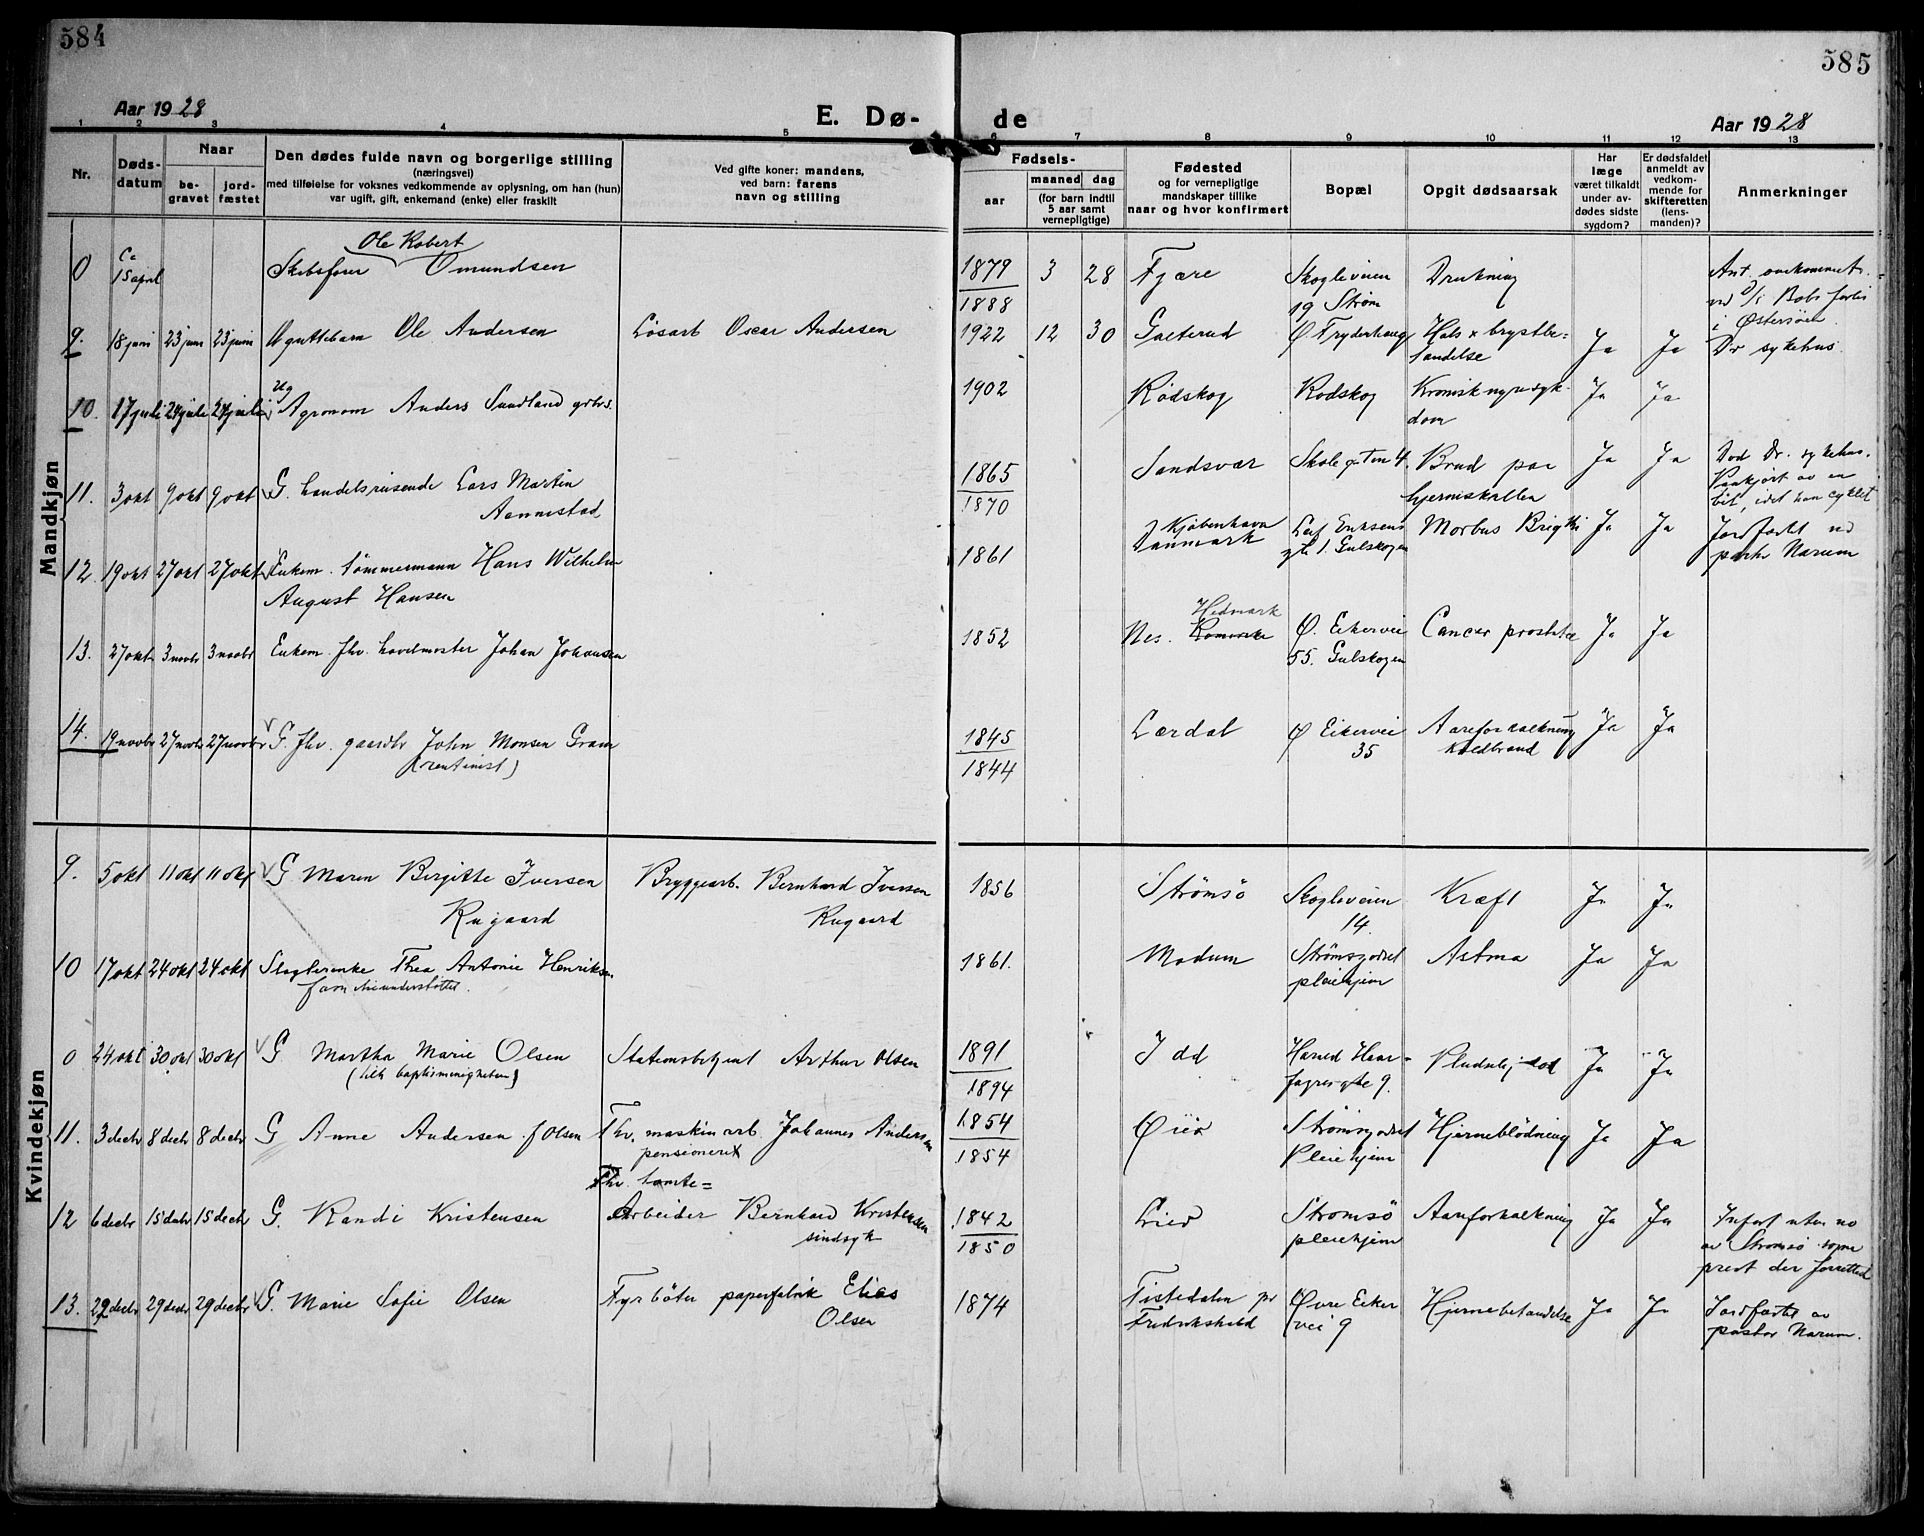 584
585
Aar 1928
E. Dø-
de
Aar 1928
1 2 3 4 5 6 7 8 9 10 11 12 13
Nr.
Døds-
datum
Naar
be-
gravet
jord-
fæstet
Den dødes fulde navn og borgerlige stilling
(næringsvei)
med tilføielse for voksnes vedkommende av oplysning, om han (hun)
var ugift, gift, enkemand (enke) eller fraskilt
Ved gifte koner: mandens,
ved barn: farens
navn og stilling
Fødsels-
aar
maaned dag
(for barn indtil
5 aar samt
vernepligtige)
Fødested
og for vernepligtige
mandskaper tillike
naar og hvor konfirmert
Bopæl
Opgit dødsaarsak
Har
læge
været tilkaldt
under av-
dødes sidste
sygdom?
Er dødsfaldet
anmeldt av
vedkom-
mende for
skifteretten
(lens-
manden)?
Anmerkninger
Mandkjøn
0 Ca 15 april Skibsfører Ole Robert Omundsen 1879 3 28 Fjære Skogliveien Drukning Ant. omkommet
1888 19 Strøm
i Østersøen
9. 18 juni 23 juni 23 juni Ole Andersen Løsarb Oscar Andersen 1922 12 30 Ø. Hals x brystbe- Ja Ja Dr sykehus.
tændelse
10. 17 juli 24 juli 24 juli Ug Agronom Anders Sundland 1902 Rødskog Rødskog Kronisk nyresyk- Ja Ja
dom
11. 3 okt 9 okt 9 okt G. handelsreisende Lars Martin 1865 Sandsvær Skolegaten 4. Brud paa Ja Ja Død Dr. sykehus.
Aennestad 1870 hjerneskallen Paakjørt av en
bil, idet han cyklet
12. 19 okt 27 okt 27 okt Enkem. tømmermann Hans Wilhelm 1861 Kjøbenhavn Leif Eriksens Morbus Brigthi Ja Ja Jordfæstet ved
August Hansen Danmark gt. 1. Gulskogen Narum
13. 27 okt 3 novbr 3 novbr Enkem. fhv. havelmester Johan Johansen 1852 Nes. Hedmark Ø. Eikervei Cancer prostatæ Ja Ja
55. Gulskogen
14. 19 novbr 27 novbr 27 novbr G. fhv. gaardbr John Monsen Gram 1845 Lærdal Ø Eikervei Aareforkalkning Ja Ja
(rentenist) 1844 35 koldbrand
Kvindekjøn
9. 5 okt 11 okt 11 okt G Maren Birgitte Iversen Bryggearb. Bernhard Iversen 1856 Strømsø Skogliveien Kræft Ja Ja
Rugaard Rugaard 14.
10 17 okt 24 okt 24 okt Slagterenke Thea Antonie Henriksen 1861. Modum Strømsgodset Astma Ja Ja
pleiehjem
0 24 okt 30 okt 30 okt G Martha Marie Olsen Stationsbetjent Arthur Olsen 1891 Idd Harald Haar- Pludselig død Ja Ja
(tilh baptismenigheten) 1894 fagresgte 9.
11. 3 decbr 8 decbr 8 decbr G Anne Andersen f Olsen Fhv. maskinarb. Johannes Andersen 1854 Strømsgodset Hjerneblødning Ja Ja
pensioneret 1854 Pleiehjem
Fhv. tomte=
12 6 decbr 15 decbr 15 decbr G. Randi Kristensen Arbeider Bernhard Kristensen 1842 Lier Strømsø Aareforkalkning Ja Ja
sindsyk 1850 pleiehjem av Strømsø sogne
prest der forretted
13. 22 decbr 29 decbr 29 decbr G. Marie Sofie Olsen Fyrbøter papirfabrik Elias 1874 Tistedalen pr Øvre Eiker Hjernebetændelse Ja Ja Jordfæstet av
Olsen Fredrikshald vei 9 pastor Narum.